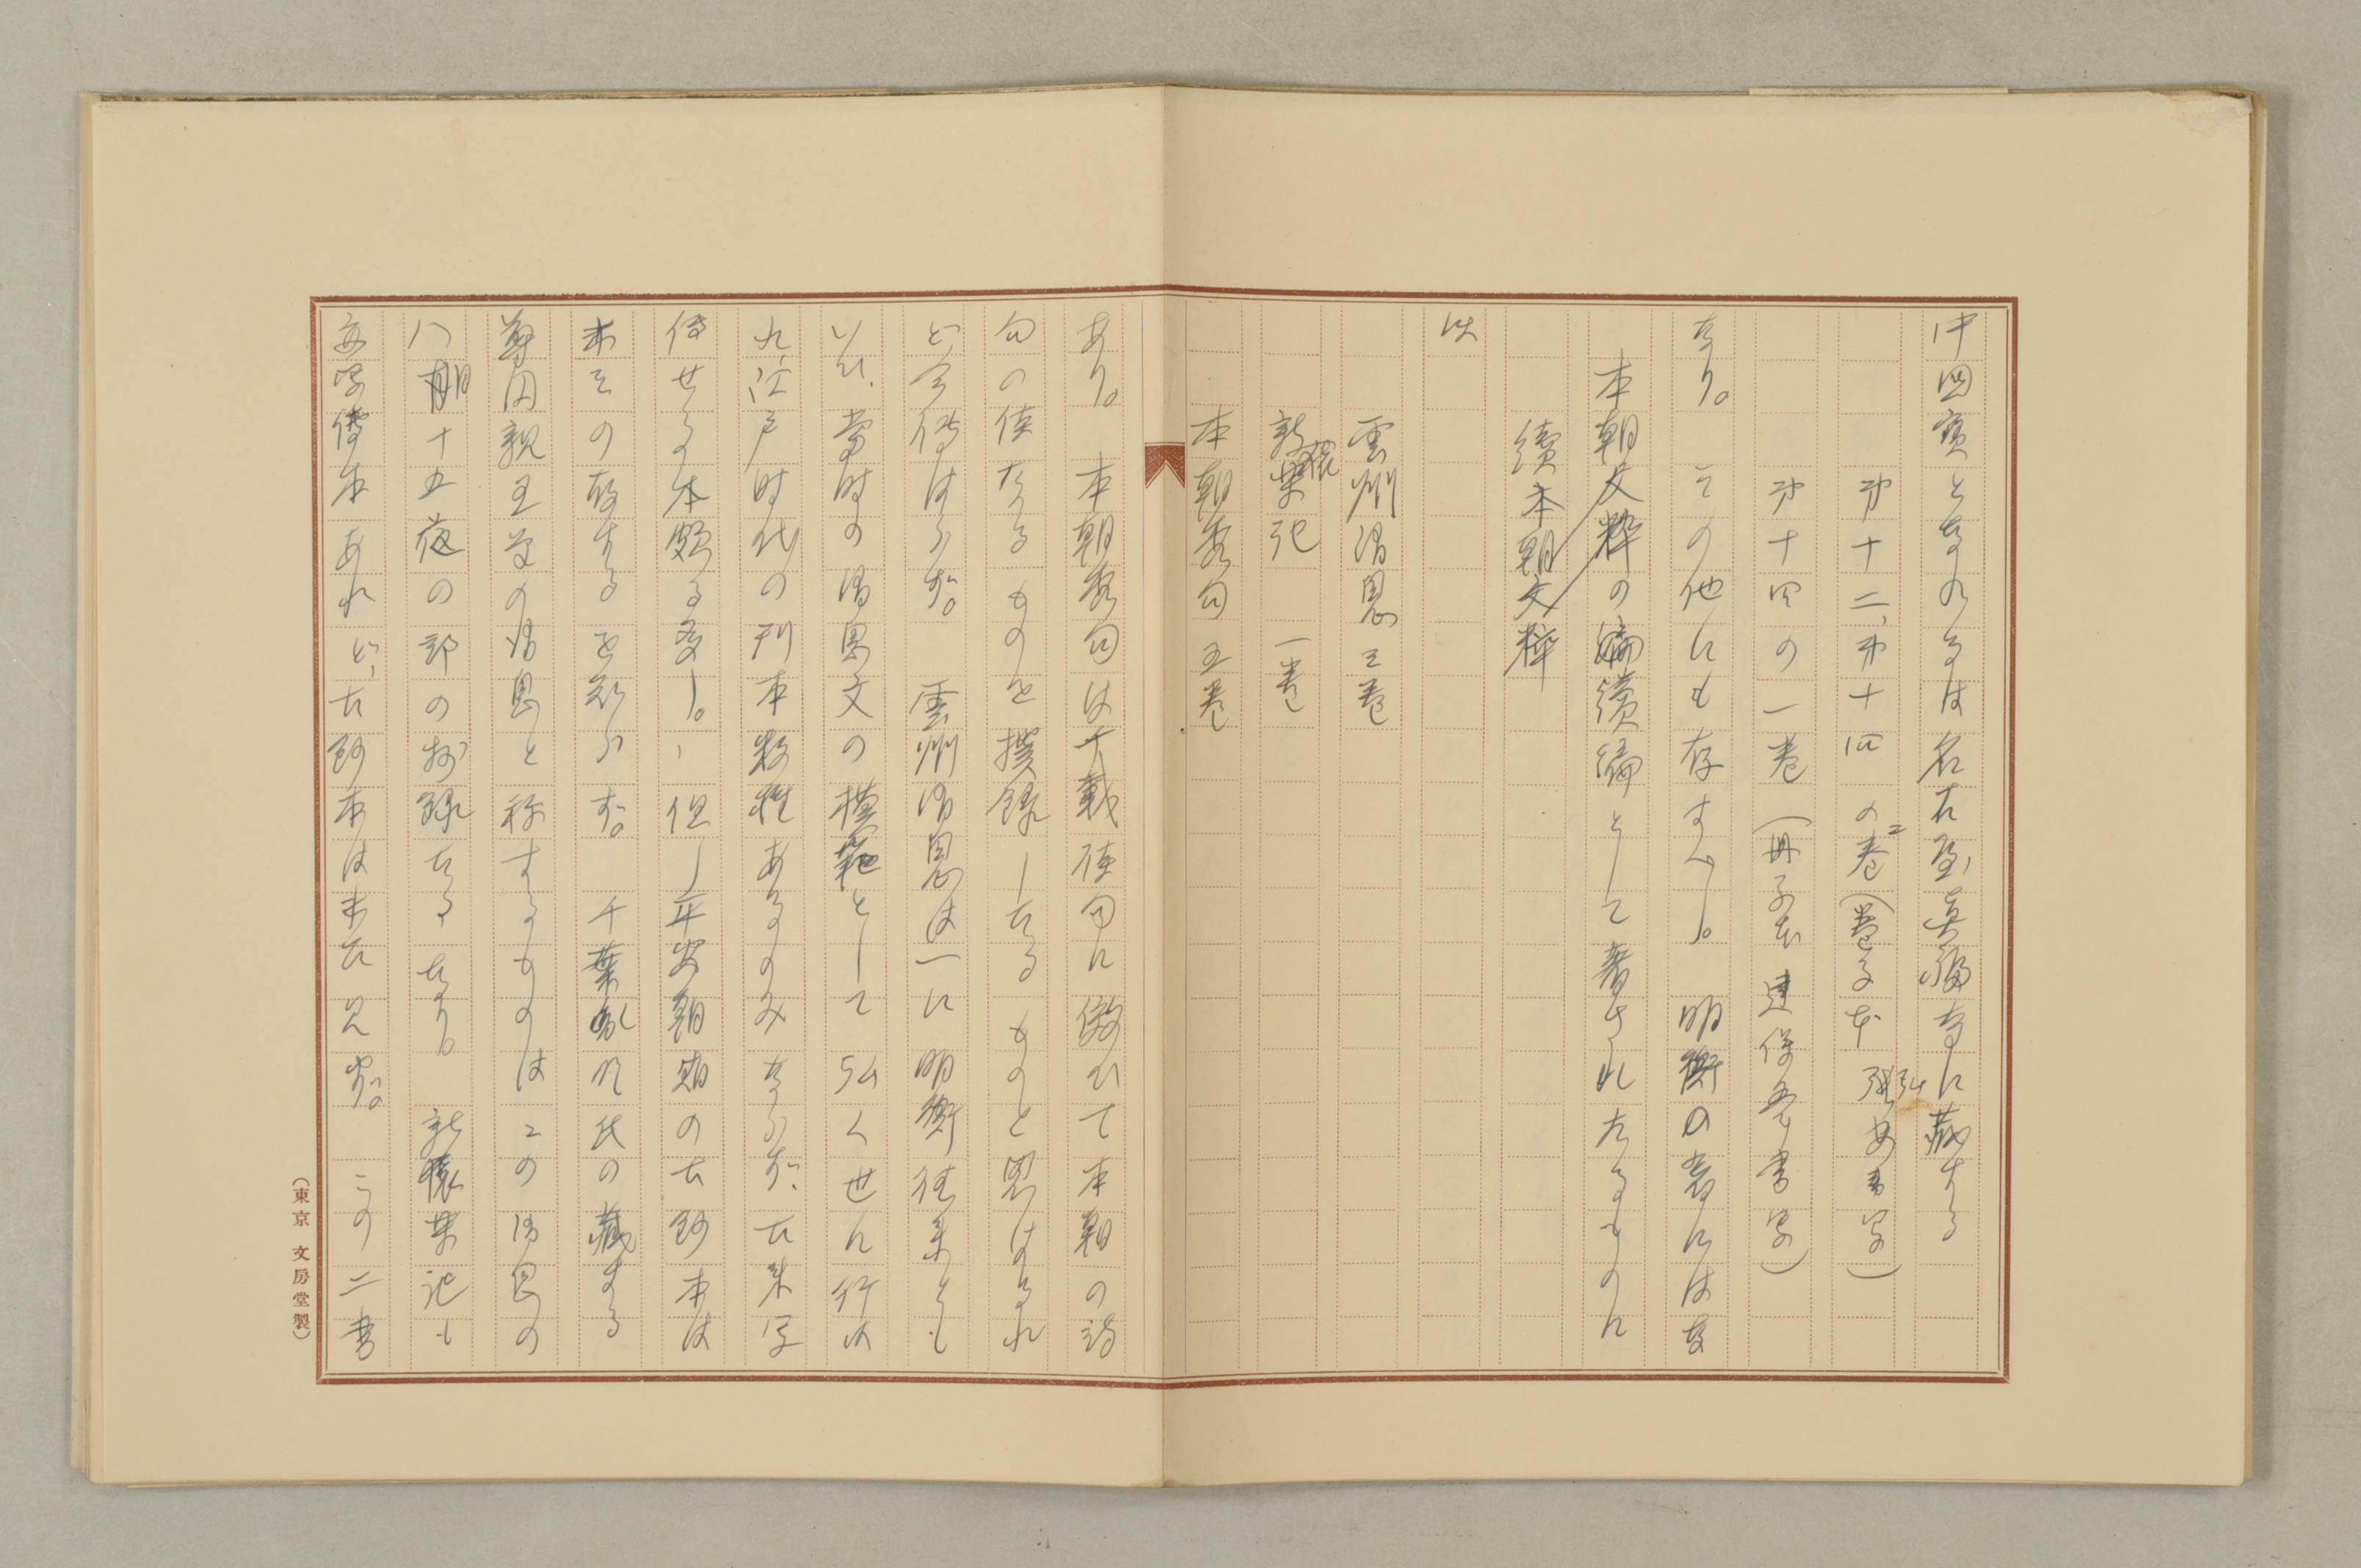 中国寳となれるは名古屋真福寺に藏する
第十二、第十四の二巻(巻子本 弘安書写)
第十四の一巻(冊子本 建保五年書写)
なり。 その他にも存すべし。 明衡の著には又
本朝文粋の編續編として著されたるものに
續本朝文粋
以
雲州消息三巻
新猿樂記 一巻
本朝秀句 五巻
あり。 本朝秀句は千載佳句に倣ひて本朝の詩
句の佳なるものを撰録したるものと思はるれ
ど今傳はらず。 雲州消息は一に明衡往来とも
いひ、當時の消息文の模範として弘く世に行は
れ、江戸時代の刊本数種あるのみならず、古来写
傳せる本頗る多し。但し平安朝期の古鈔本は
未その存するを知らず。 千葉胤明氏の藏する
尊円親王筆の消息と称するものはこの消息の
八月十五夜の部の抄録なるなり。 新猿楽記も
亦写傳本あれど、古鈔本は未だ見ず。 この二書
(東京 文房堂製)